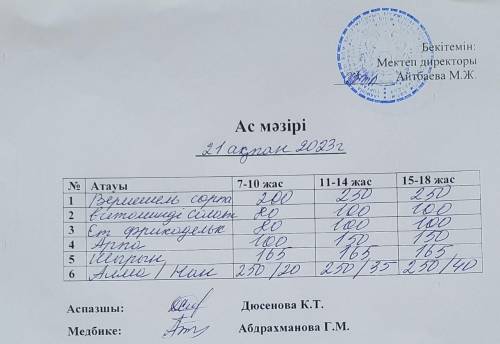 Бекітемін:
Мектеп директоры
Айтбаева М.Ж.
Ас мәзірі
21 ақпан 2023г
№ Атауы 7-10 жас 11-14 жас 15-18 жас
1 Вермешель сорпа 200 250 250
2 витоминді солот 80 100 100
3 Ет фрикодельк 80 100 100
4 Арпа 100 150 150
5 Шырын 165 165 165
6 Алма / Нан 250/20 250/35 250/40
Аспазшы: Дюсенова К.Т.
Медбике: Абдрахманова Г.М.